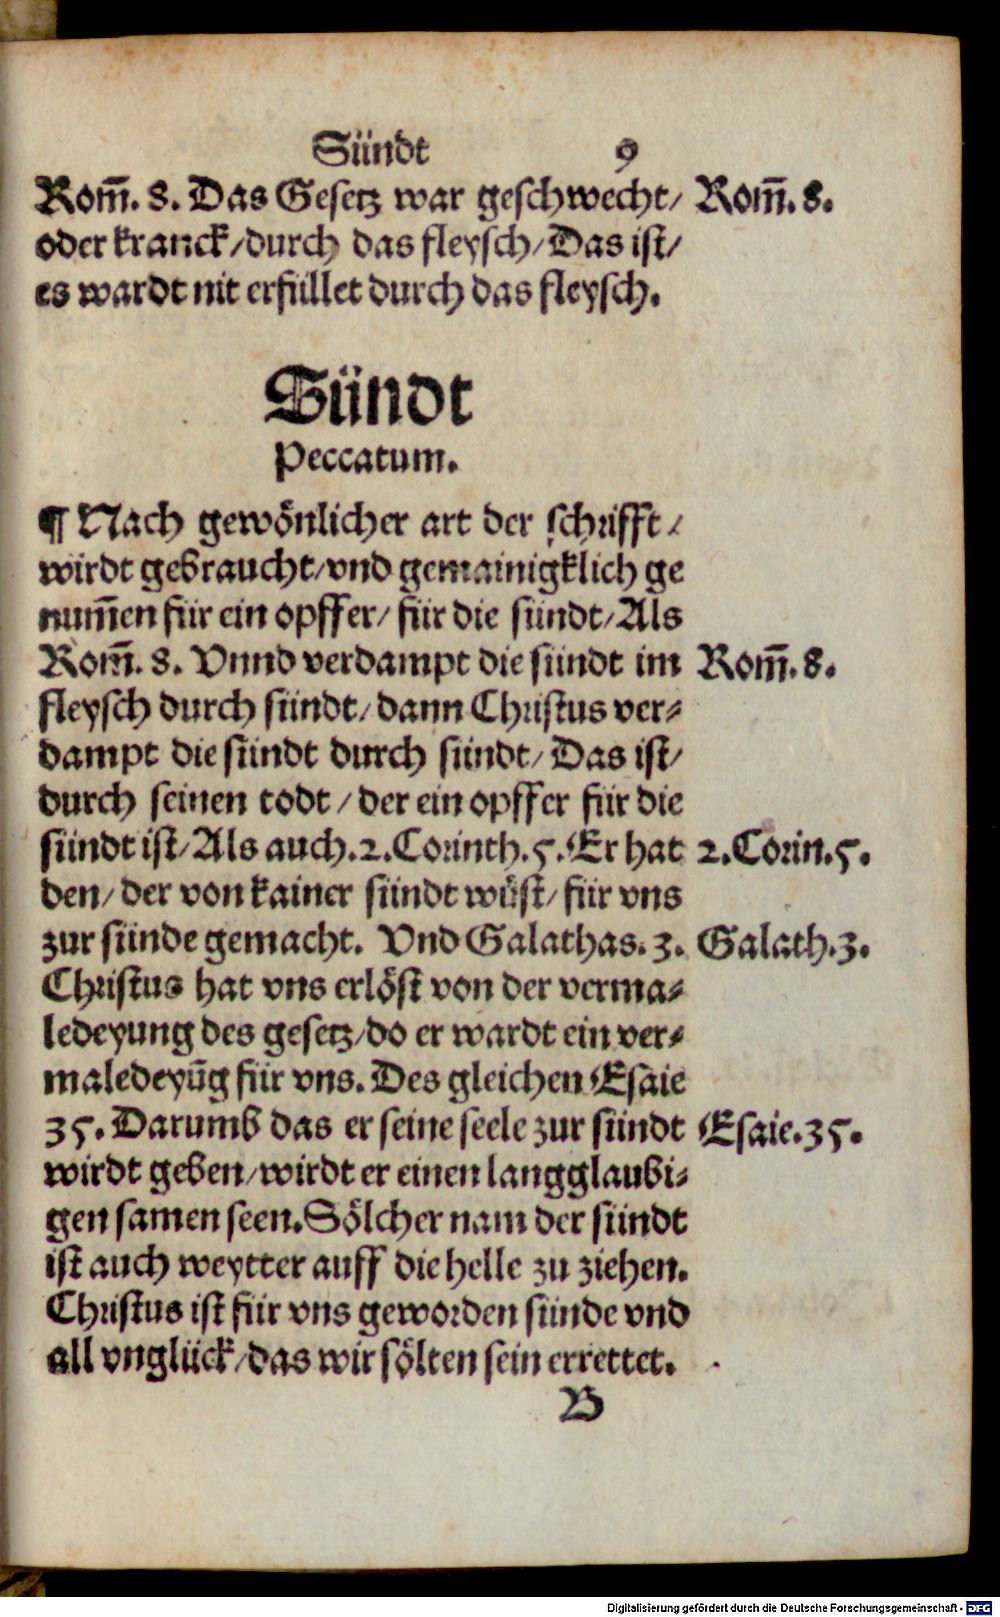 Sündt 9
Rom̃. 8. Das Gesetz war geschwecht/ Rom̃. 8.
oder kranck/durch das fleysch/Das ist/
es wardt nit erfüllet durch das fleysch.
Sündt
Peccatum.
¶ Nach gewönlicher art der schrifft/
wirdt gebraucht/vnd gemainigklich ge
num̃en für ein opffer/ für die sündt/Als
Rom̃. 8. Vnnd verdampt die sündt im Rom̃. 8.
fleysch durch sündt/dann Christus ver⸗
dampt die sündt durch sündt/Das ist/
durch seinen todt/der ein opffer für die
sündt ist/Als auch.2.Corinth.5.Er hat 2.Corin.5.
den/der von kainer sündt wüst/für vns
zur sünde gemacht. Vnd Galathas.3. Galath.3.
Christus hat vns erlöst von der verma⸗
ledeyung des gesetz/do er wardt ein ver⸗
maledeyũg für vns.Des gleichen Esaie
35.Darumb das er seine seele zur sündt Esaie.35.
wirdt geben/wirdt er einen langglaubi⸗
gen samen seen.Sölcher nam der sündt
ist auch weytter auff die helle zu ziehen.
Christus ist für vns geworden sünde vnd
all vnglück/das wir sölten sein errettet.
B
Digitalisierung gefördert durch die Deutsche Forschungsgemeinschaft - DFG